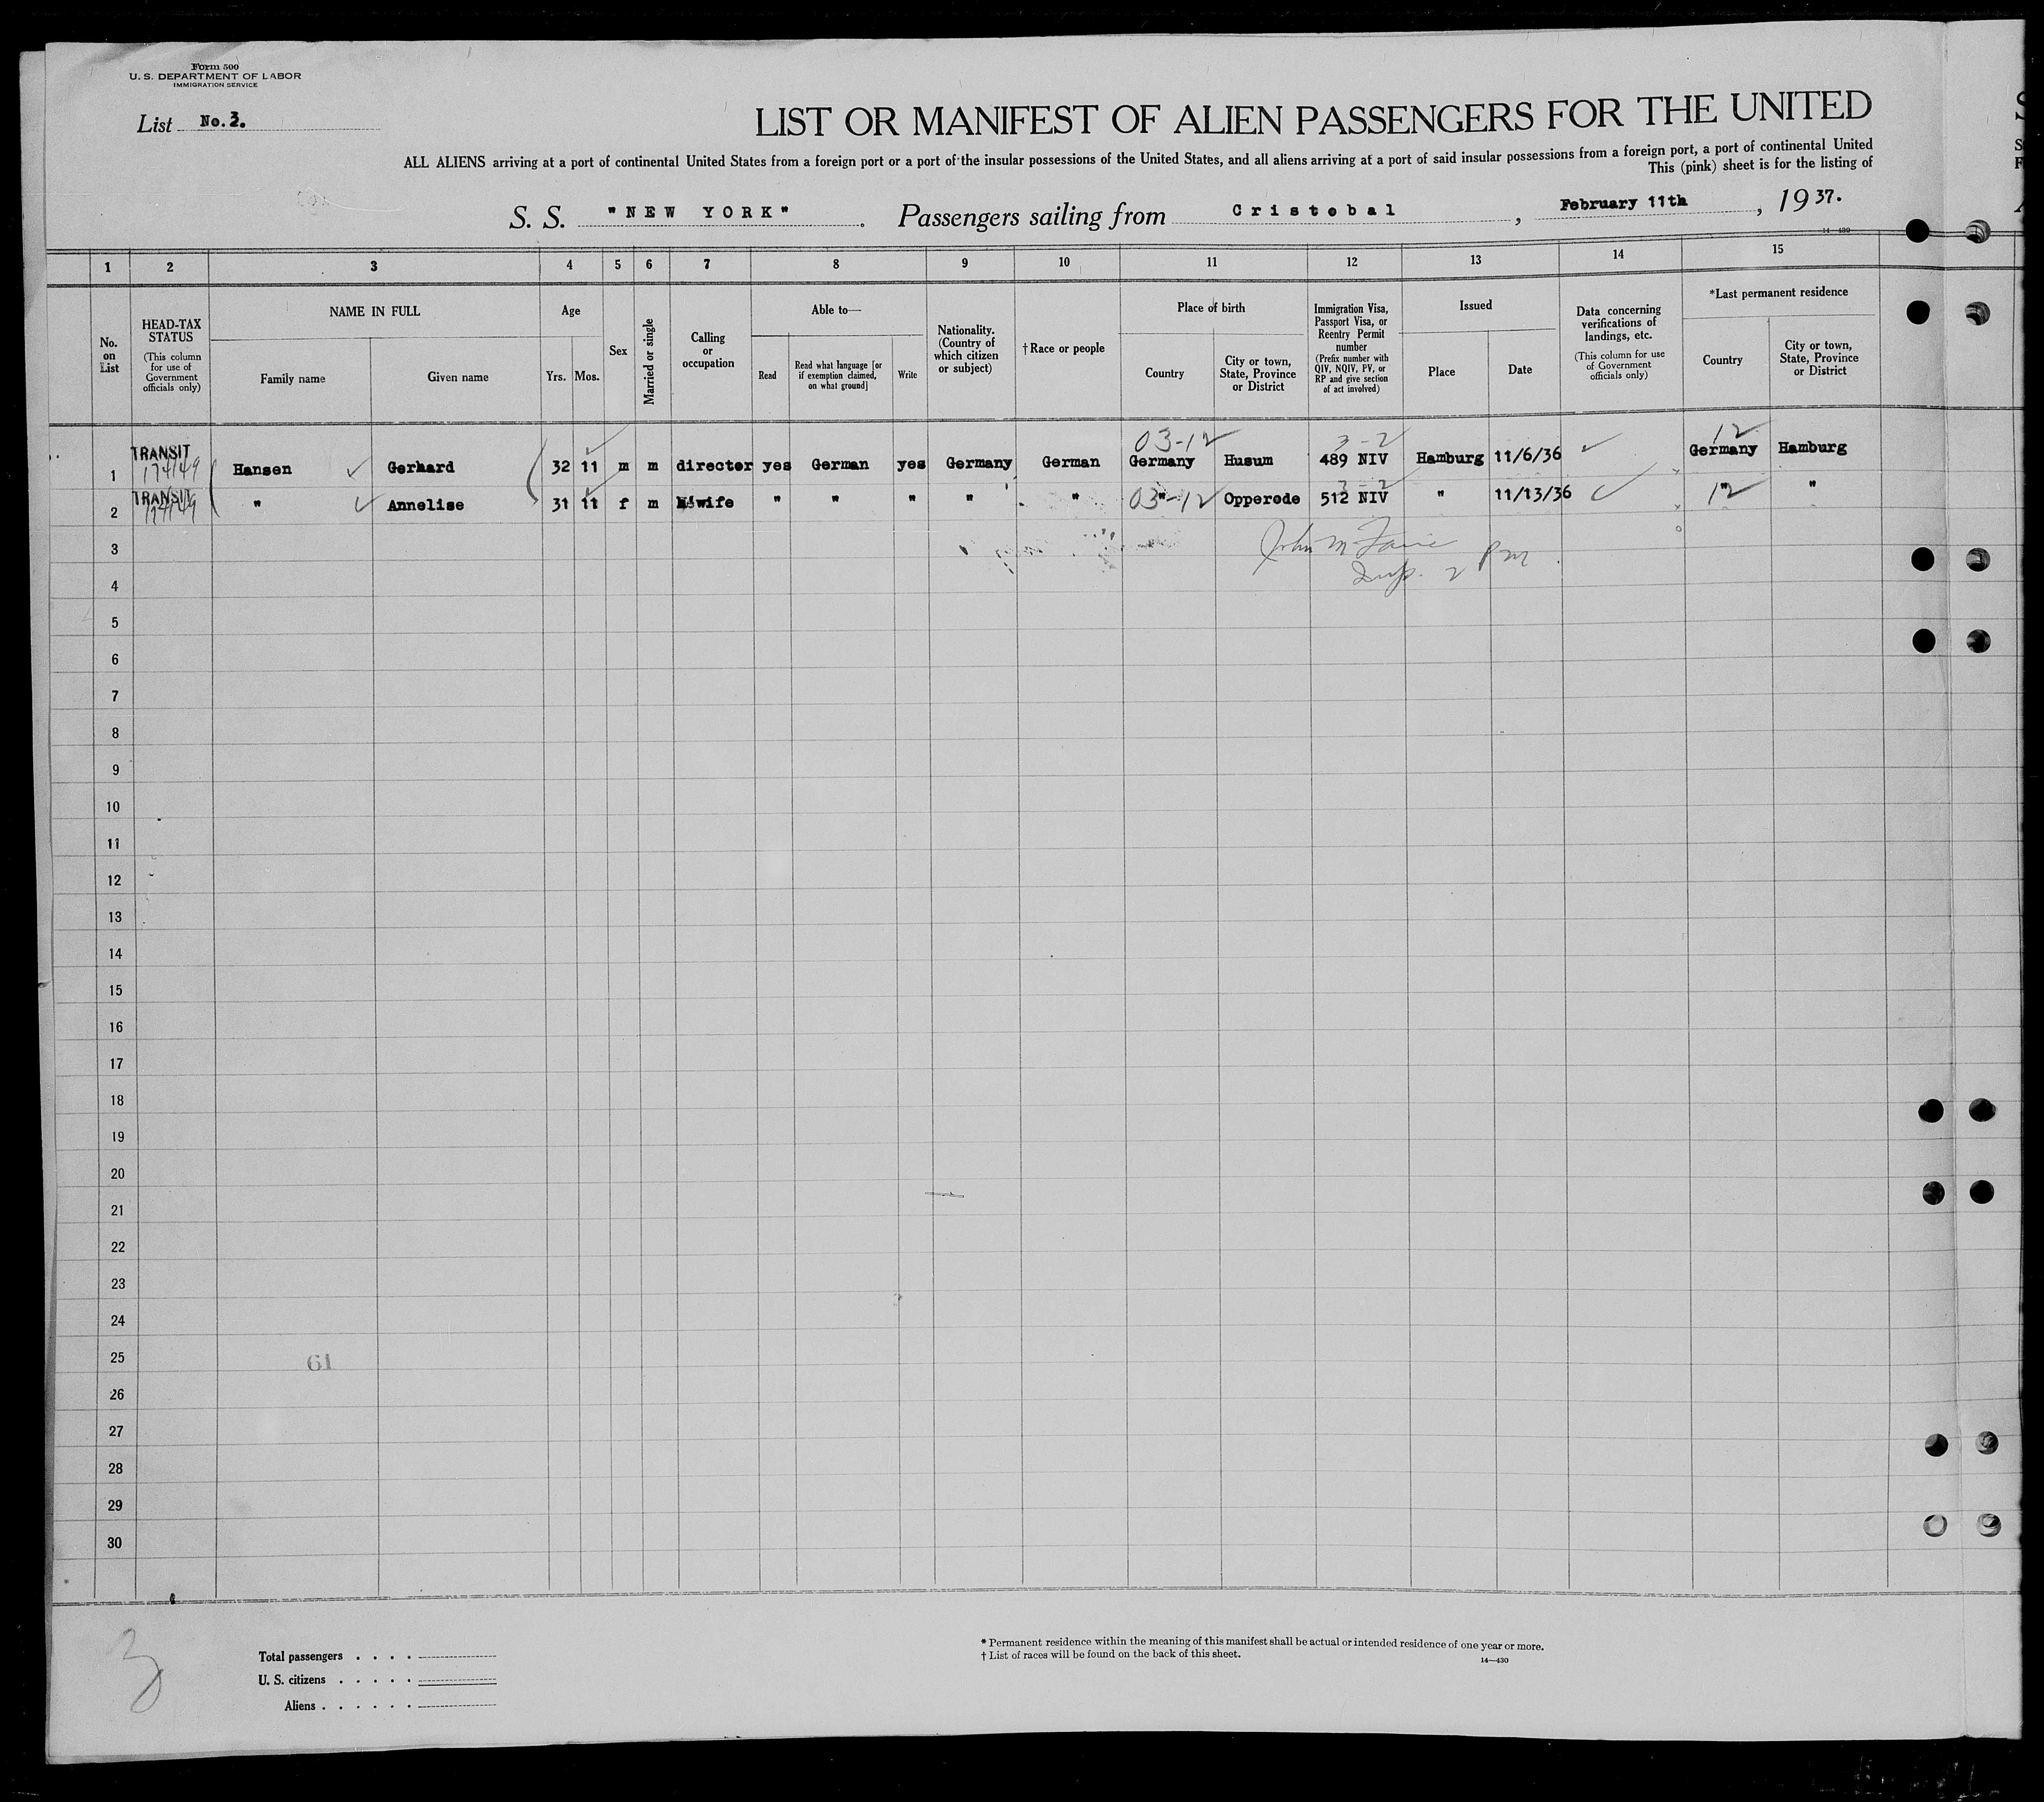 Form 500
U. S. DEPARTMENT OF LABOR
IMMIGRATION SERVICE
List No. 3.
LIST OR MANIFEST OF ALIEN PASSENGERS FOR THE UNITED
ALL ALIENS arriving at a port of continental United States from a foreign port or a port of the insular possessions of the United States, and all aliens arriving at a port of said insular possessions from a foreign port, a port of continental United
This (pink) sheet is for the listing of
S. S. "NEW YORK" . Passengers sailing from Cristobal , February 11th , 1937.
14—430
1 2 3 4 5 6 7 8 9 10 11 12 13 14 15
No. on List
HEAD-TAX STATUS
(This column for use of Government officials only)
NAME IN FULL
Family name
Given name
Age
Yrs. Mos.
Sex
Married or single
Calling or occupation
Able to—
Read
Read what language [or if exemption claimed, on what ground]
Write
Nationality. (Country of which citizen or subject)
†Race or people
Place of birth
Country
City or town, State, Province or District
Immigration Visa, Passport Visa, or Reentry Permit number
(Prefix number with QIV, NQIV, PV, or RP and give section of act involved)
Issued
Place
Date
Data concerning verifications of landings, etc.
(This column for use of Government officials only)
*Last permanent residence
Country
City or town, State, Province or District
03-12 3-2 12
1 TRANSIT 174149 Hansen Gerhard 32 11 m m director yes German yes Germany German Germany Husum 489 NIV Hamburg 11/6/36 Germany Hamburg
3-2
2 TRANSIT 174149 " Annelise 31 11 f m wife " " " " " 03-12 " Opperode 512 NIV " 11/13/36 12 " "
3 John M
4 Insp. 2 PM
5
6
7
8
9
10
11
12
13
14
15
16
17
18
19
20
21
22
23
24
25
61
26
27
28
29
30
3
Total passengers . . . .
U. S. citizens . . . . .
Aliens . . . . . .
* Permanent residence within the meaning of this manifest shall be actual or intended residence of one year or more.
† List of races will be found on the back of this sheet.
14—430